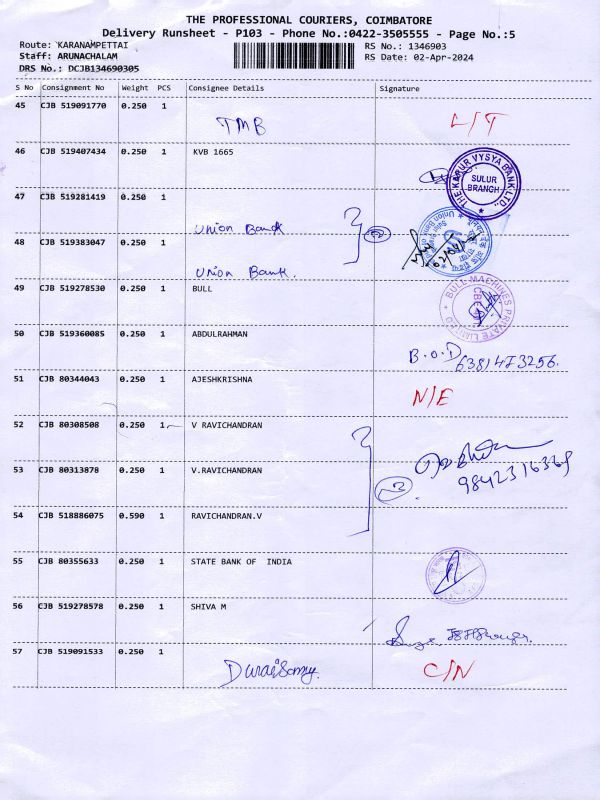 THE PROFESSIONAL COURIERS, COIMBATORE
Delivery Runsheet - P103 - Phone No.:0422-3505555 - Page No.:5
Route: KARANAMPETTAI RS No.: 1346903
Staff: ARUNACHALAM RS Date: 02-Apr-2024
DRS No.: DCJB134690305
S No Consignment No Weight PCS Consignee Details Signature
45 CJB 519091770 0.250 1
TMB L/T
46 CJB 519407434 0.250 1 KVB 1665
THE KARUR VYSYA BANK LTD.,
SULUR
BRANCH
47 CJB 519281419 0.250 1
Union Bank
48 CJB 519383047 0.250 1
Union Bank.
49 CJB 519278530 0.250 1 BULL
BULL MACHINES PRIVATE LIMITED
50 CJB 519360085 0.250 1 ABDULRAHMAN
B.O.D 6381473256.
51 CJB 80344043 0.250 1 AJESHKRISHNA
N/E
52 CJB 80308508 0.250 1 V RAVICHANDRAN
53 CJB 80313878 0.250 1 V.RAVICHANDRAN
9842316369
54 CJB 518886075 0.590 1 RAVICHANDRAN.V
55 CJB 80355633 0.250 1 STATE BANK OF INDIA
56 CJB 519278578 0.250 1 SHIVA M
57 CJB 519091533 0.250 1
DuraiSamy. C/N